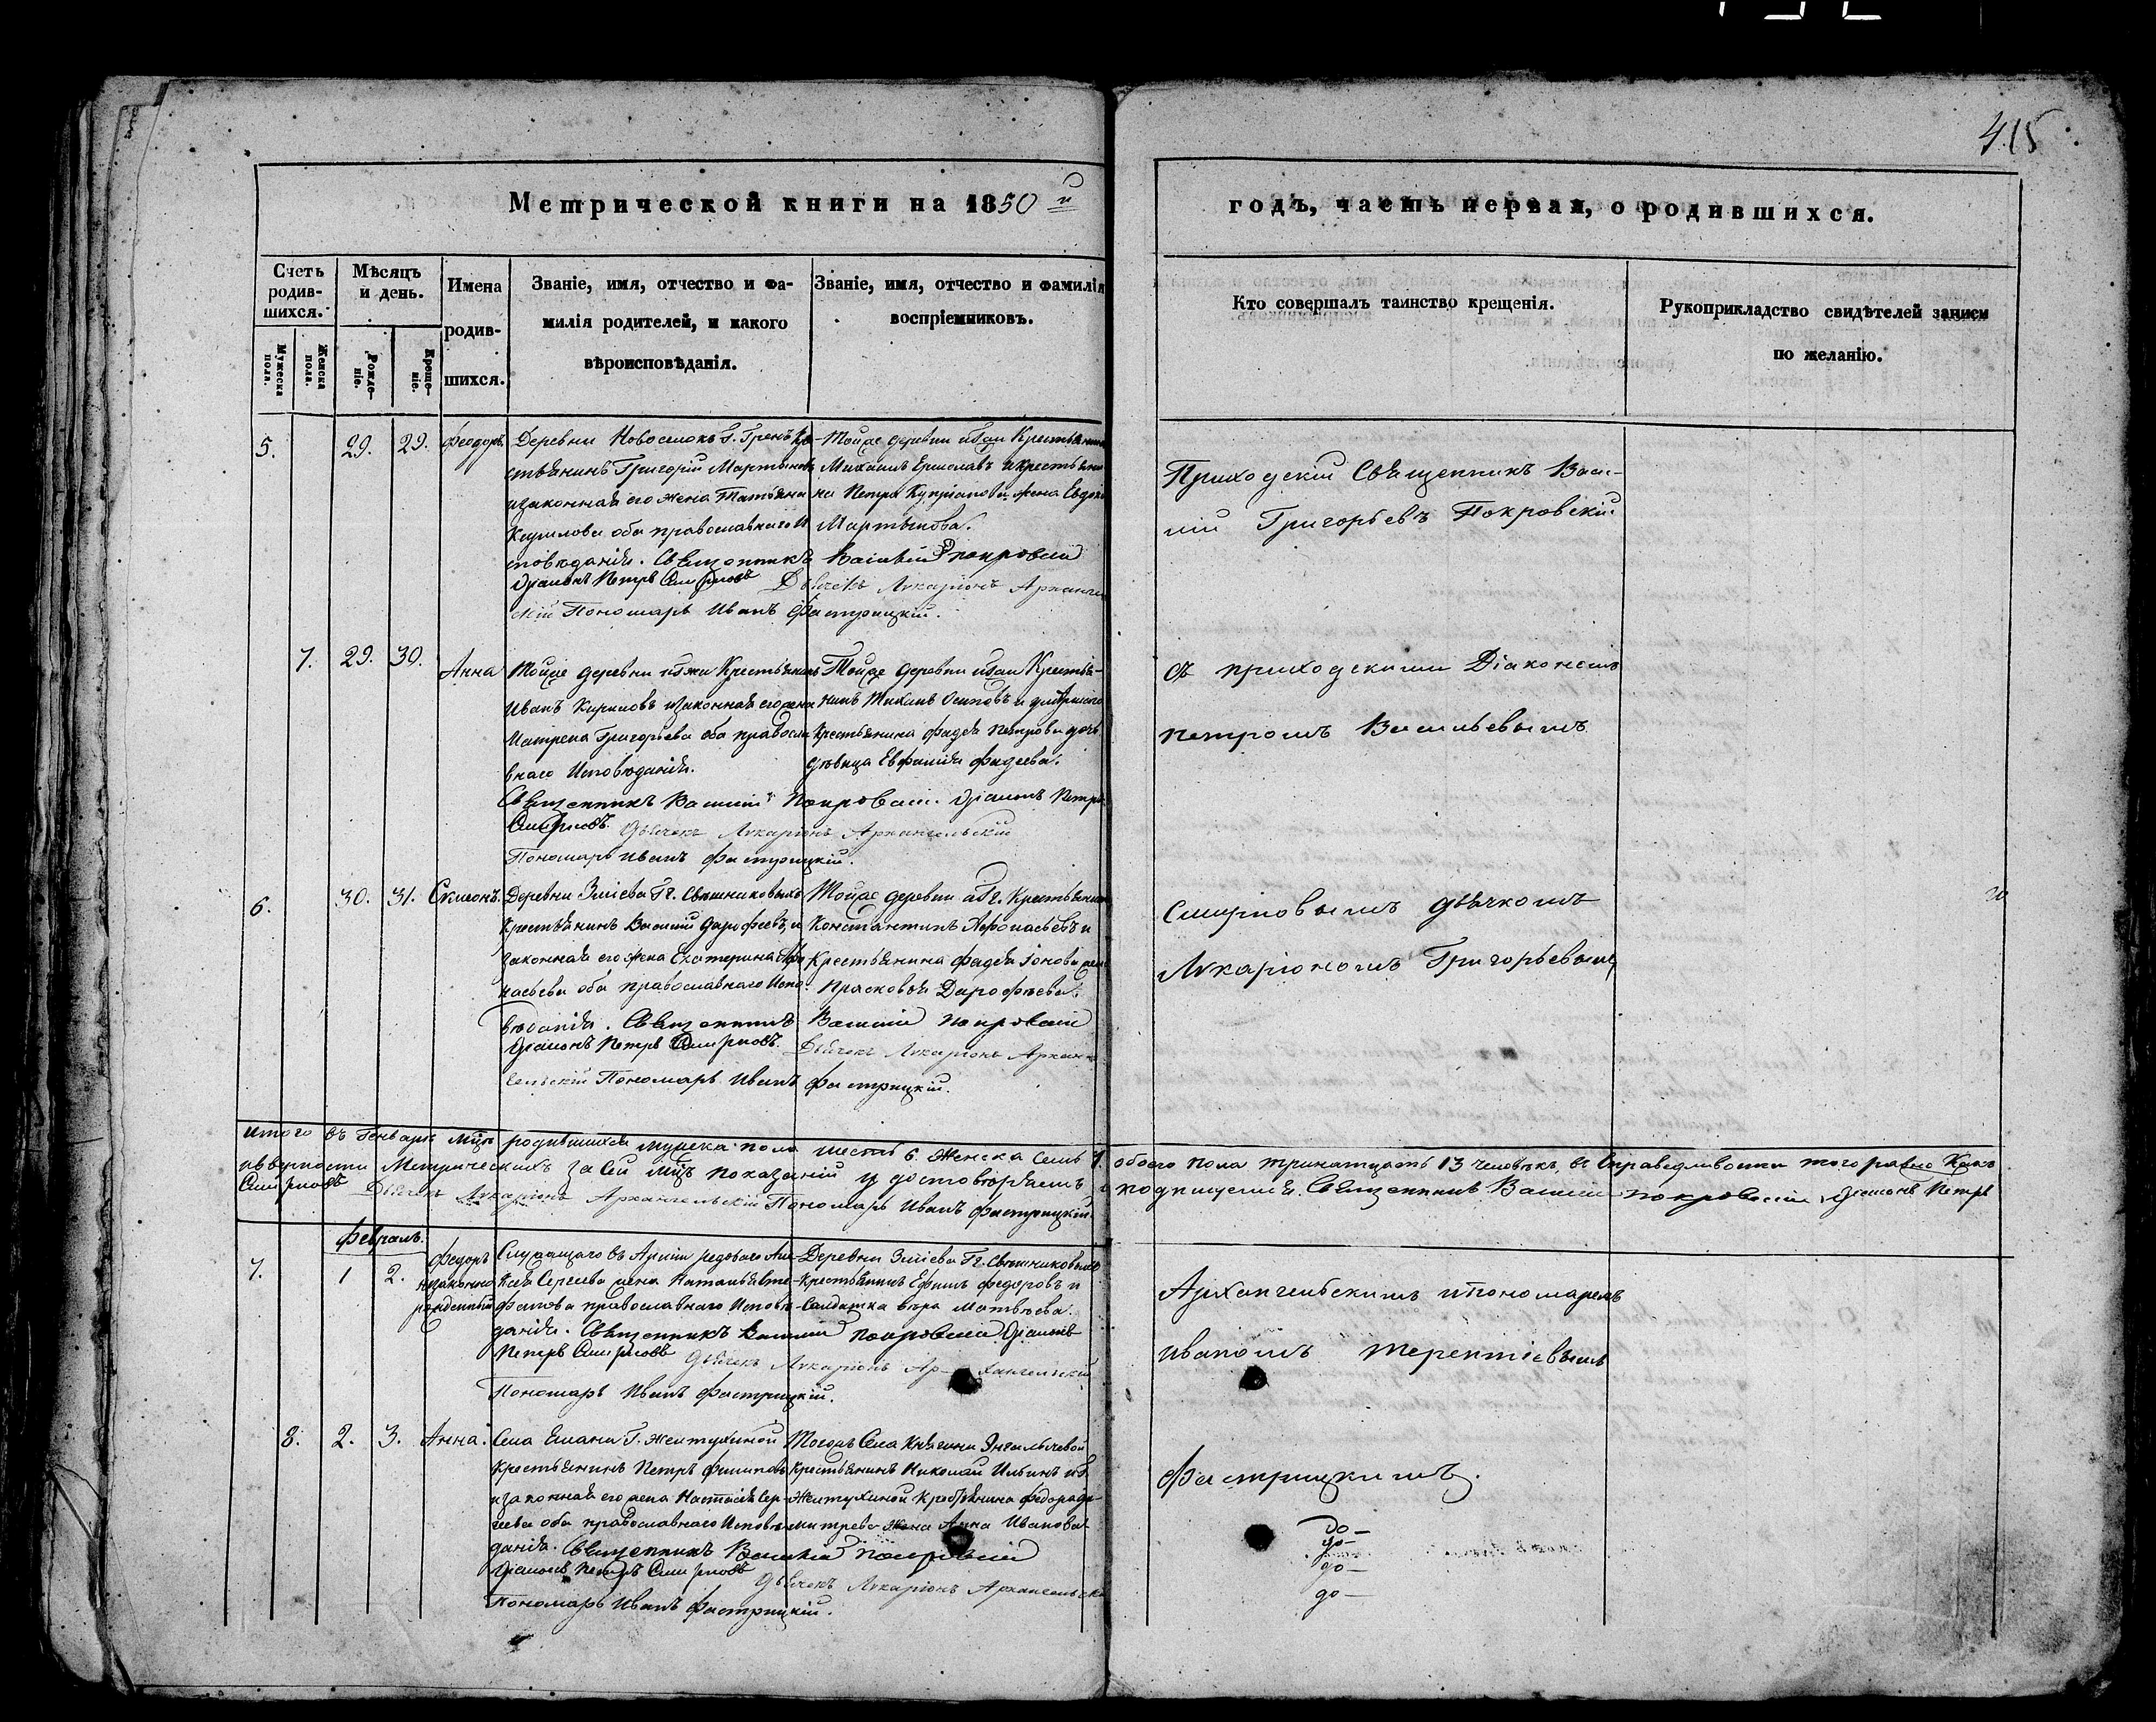 415
Метрической книги на 1850 й
годъ, часть первая, о родившихся.
Счетъ родив-шихся.
Мѣсяцъ и день.
Имена родив-шихся.
Званіе, имя, отчество и фа-
милія родителей, и какого
вѣроисповѣданія.
Званіе, имя, отчество и фамилія
воспріемниковъ.
Кто совершалъ таинство крещенія.
Рукоприкладство свидѣтелей записи
по желанію.
Мужеска пола.
Женска пола.
Рожде-ніе.
Креще-ніе.
5. 29. 29. Феодоръ.
Деревни Новоселокъ Г. Кре-
стьянинъ Григорій Мартыновъ
изаконная его жена Татьяна
оба православнаго И
сповѣданія. Священникъ Василій Покровскій
Діаконъ Петръ Смирновъ Дьячекъ Иларіонъ Арханге
скій Пономарь Иванъ
Тойже деревни Крестьянинъ
Михаилъ Ермолаевъ икрестьяни
на Петра Купріанова жена Евдокі
Мартынова.
Приходскій Священникъ Васи-
лій Григорьевъ Покровскій
7. 29. 30. Анна
Тойже деревни Крестьянинъ
Иванъ Кириловъ изаконная его жена
Матрена Григорьева оба правосла
внаго Исповѣданія.
Священникъ Василій Покровскій. Діаконъ Петръ
Смирновъ. Дьячекъ Иларіонъ Архангельскій
Пономарь Иванъ
Тойже деревни Крестья-
нинъ Осиповъ и
Крестьянина Фадея Петрова дочь
дѣвица Евфимія Фадеева.
съ приходскими Діакономъ
Петромъ Васильевымъ
6. 30. 31. Симеонъ.
Деревни Зміева Гг. Свѣшниковыхъ
Крестьянинъ Василій Дарофеевъ, и
законная его жена Екатерина Афа
насьева оба православнаго Испо
вѣданія. Священникъ Василій Покровскій
Діаконъ Петръ Смирновъ. Дьячекъ Иларіонъ Архан-
гельскій Пономарь Иванъ
Тойже деревни Крестьянинъ
Константинъ Афонасьевъ и
Крестьянина Фадея Іонова жена
Прасковья Дарофѣева.
Смирновымъ дьячкомъ
Иларіономъ Григорьевымъ
итого въ Генварѣ мцѣ родившихся мужска пола шесть 6. Женска семь 7. обоего пола тринатцать 13 человѣкъ, въ справедливости того равно какъ
Метрическихъ за сей мцъ показаній удостовѣряемъ подписуемся. Священникъ Василій Покровскій Діаконъ Петръ
Смирновъ Дьячекъ Иларіонъ Архангельскій Пономарь Иванъ
Февраль.
7. 1 2. Федоръ
незаконно
рожденный
Служащаго въ Арміи рядоваго Але
ксѣя Сергѣева жена Наталья
православнаго Исповѣ
данія. Священникъ Василій Покровскій Діаконъ
Петръ Смирновъ Дьячекъ Иларіонъ Ар- хангельскій
Пономарь Иванъ
Деревни Зміева Гг. Свѣшниковыхъ
Крестьянинъ Ефимъ Федоровъ и
Салдатка Вѣра Матвѣева.
Архангельскимъ ипономаремъ
Иваномъ Терентіевымъ
8. 2. 3. Анна.
Села Г. Желтухиной
Крестьянинъ Петръ Филиповъ
изаконная его жена Настасья Сер-
геева оба православнаго Исповѣ
данія. Священникъ Василій Покровскій
Діаконъ Петръ Смирновъ Дьячекъ Иларіонъ Архангельскі
Пономарь Иванъ
Тогожъ Села Княгини Енгалычевой
Крестьянинъ Николай Ильинъ
Желтухиной Крестьянина Федора Ди-
митрева жена Анна Иванова
до —
до —
до —
до —